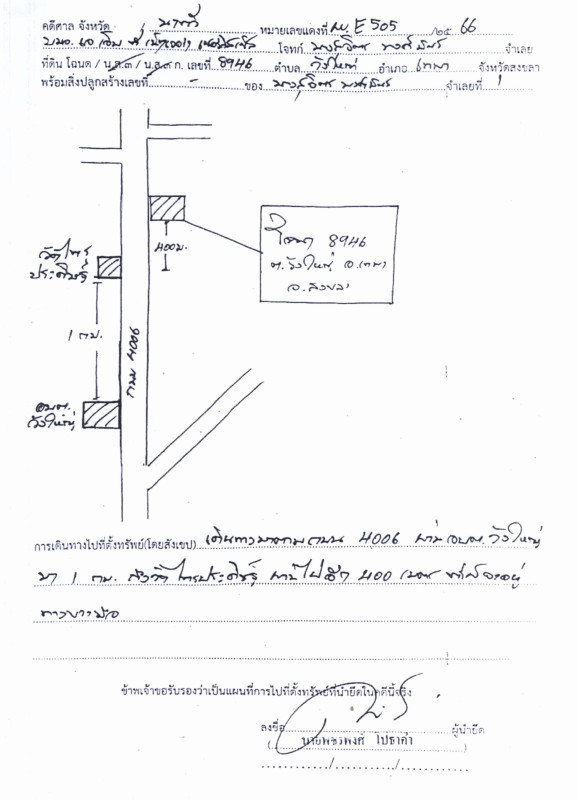 คดีศาล จังหวัด นาทวี หมายเลขแดงที่ ผบ.E 505 /๒๕ 66
โจทก์ จำเลย
ที่ดิน โฉนด / น.ส.๓ / น.ส.๓ ก. เลขที่ 8946 ตำบล วังใหญ่ อำเภอ เทพา จังหวัดสงขลา
พร้อมสิ่งปลูกสร้างเลขที่ - ของ จำเลยที่ 1
400 ม.
โฉนด 8946
ต.วังใหญ่ อ.เทพา
จ.สงขลา
วัดไทร
ประดิษฐ์
1 กม.
ถนน 4006
อบต.
วังใหญ่
การเดินทางไปที่ตั้งทรัพย์(โดยสังเขป) เดินทางมาตามถนน 4006 ผ่าน อบต.วังใหญ่
มา 1 กม. ถึงวัดไทรประดิษฐ์ ผ่านไปอีก 400 เมตร ทรัพย์จะอยู่
ทางขวามือ
ข้าพเจ้าขอรับรองว่าเป็นแผนที่การไปที่ตั้งทรัพย์ที่นำยึดในคดีนี้จริง
ลงชื่อ ผู้นำยึด
( นายพชรพงศ์ โปธาคำ )
/ /